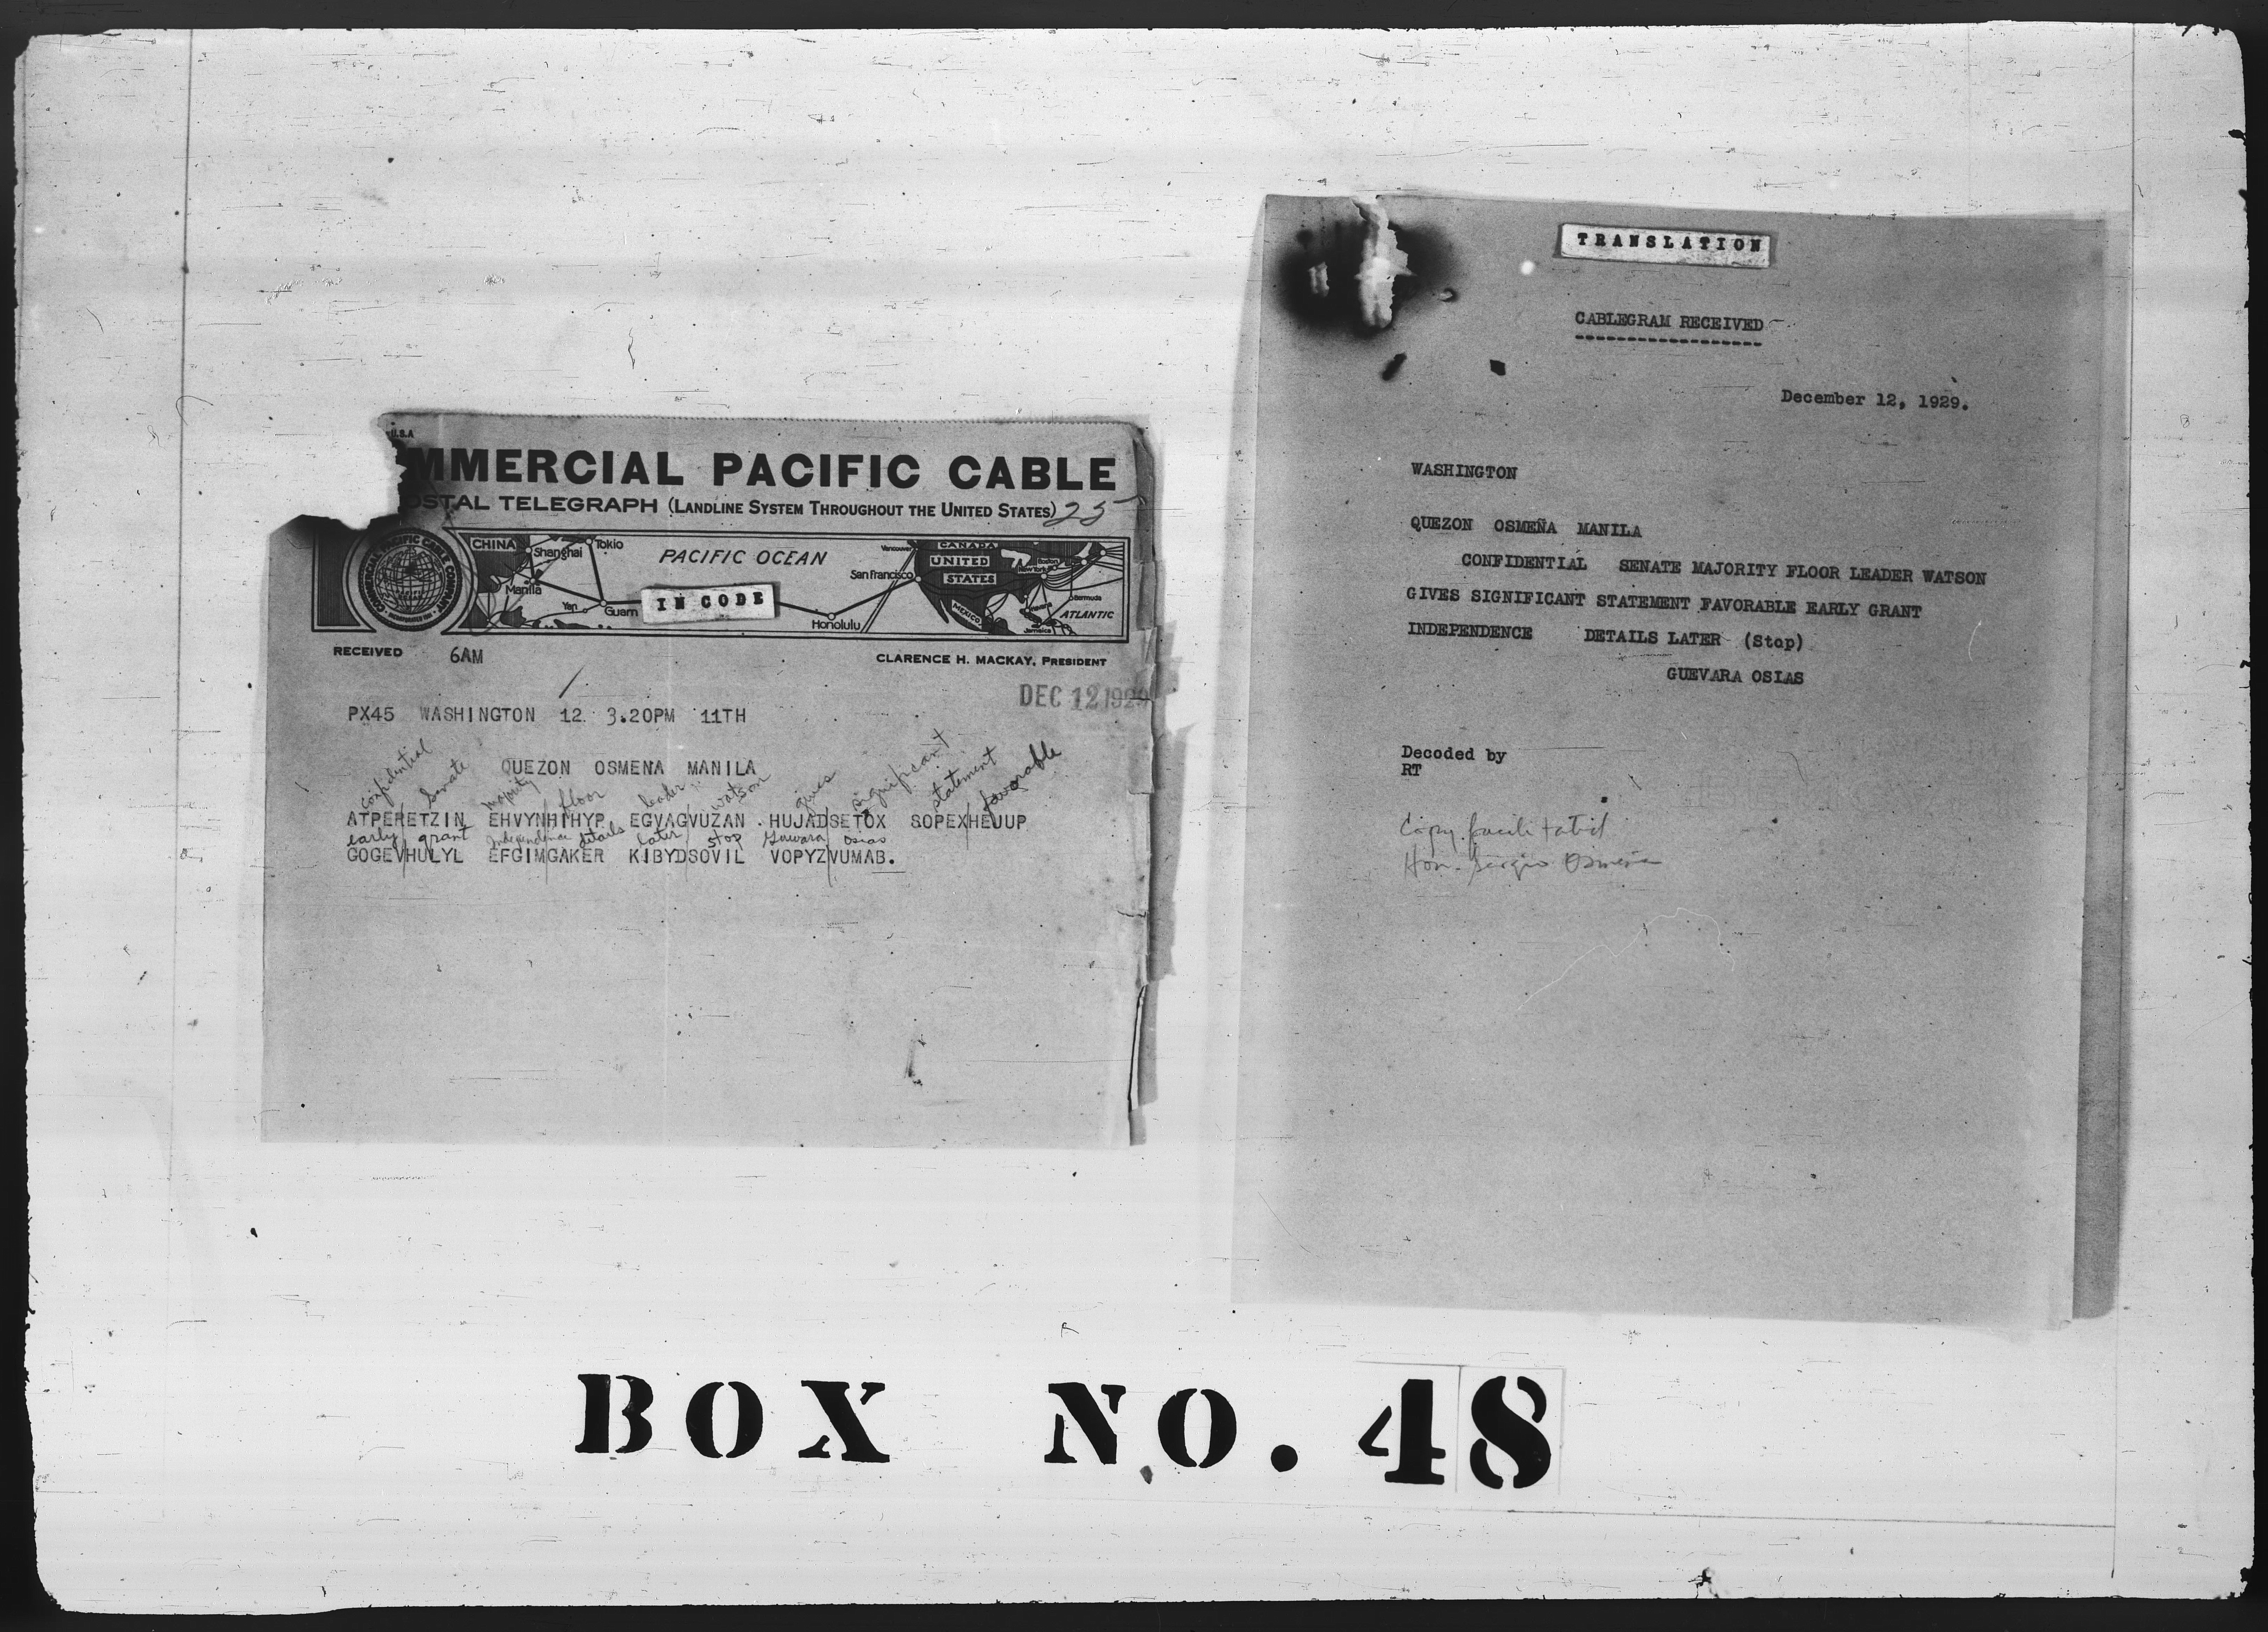 U.S.A
MMERCIAL PACIFIC CABLE
OSTAL TELEGRAPH (LANDLINE SYSTEM THROUGHOUT THE UNITED STATES) 25
COMMERCIAL PACIFIC CABLE COMPANY
CHINA
Shanghai
Tokio
PACIFIC OCEAN
Manila
Yap
Guam
IN CODE
Honolulu
San Francisco
Vancouver
CANADA
UNITED
STATES
MEXICO
Boston
New York
Bermuda
Jamaica
ATLANTIC
RECEIVED 6AM
CLARENCE H. MACKAY, PRESIDENT
DEC 12 1929
PX45 WASHINGTON 12 3.20PM 11TH
QUEZON OSMENA MANILA
confidential Senate majority floor leader watson gives significant statement favorable
ATPERETZIN EHVYNHIHYP EGVAGVUZAN HUJADSETOX SOPEXHEJUP
early grant Independence details later stop Guevara Osias
GOGEVHULYL EFGIMGAKER KIBYDSOVIL VOPYZVUMAB.
TRANSLATION
CABLEGRAM RECEIVED
December 12, 1929.
WASHINGTON
QUEZON OSMEÑA MANILA
CONFIDENTIAL SENATE MAJORITY FLOOR LEADER WATSON
GIVES SIGNIFICANT STATEMENT FAVORABLE EARLY GRANT
INDEPENDENCE DETAILS LATER (Stop)
GUEVARA OSIAS
Decoded by
RT
Copy
Hon. Sergio Osmeña
BOX NO. 48